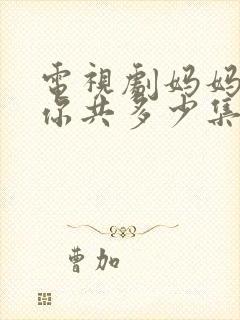 電視劇妈妈
你共多少集
曹加